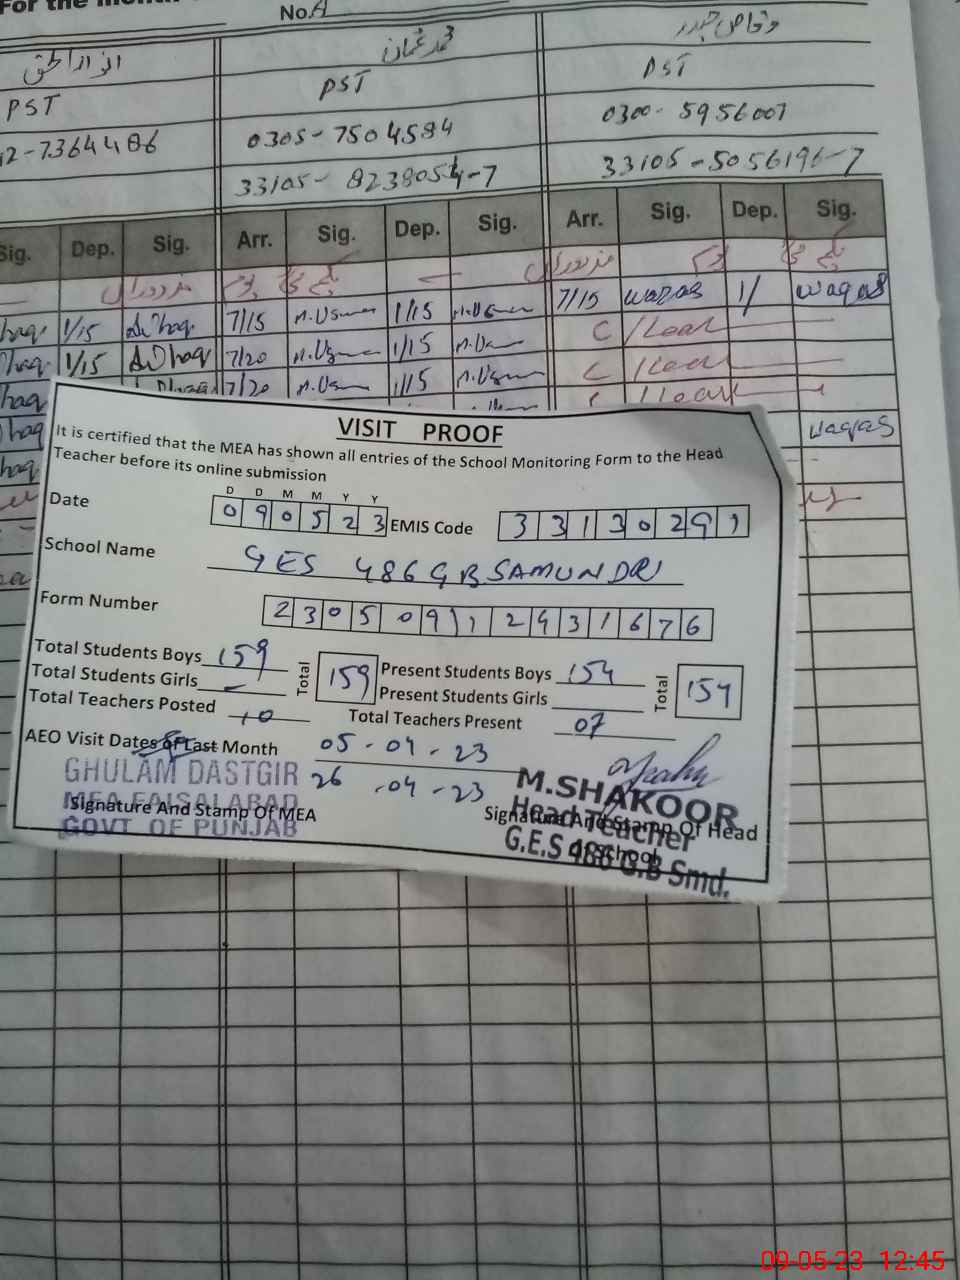 For the month
No. A
انوار الحق محمد عثمان وقاص حیدر
PST PST PST
2-7364486 0305-7504584 0300-5956007
33105-8238054-7 33105-5056196-7
Sig. Dep. Sig. Arr. Sig. Dep. Sig. Arr. Sig. Dep. Sig.
یکم مئی یوم مزدوراں
7/15 waqas 1/ waqas
haq 1/15 7/15 M.Usman 1/15 M.Usman C/Leave
haq 1/15 7/20 M.Usman 1/15 C/Leave
haq 7/20 M.Usman 1/15 M.Usman C/Leave
haq waqas
haq
VISIT PROOF
It is certified that the MEA has shown all entries of the School Monitoring Form to the Head
Teacher before its online submission
D D M M Y Y
Date 090523 EMIS Code 33130291
School Name GES 486 GB SAMUNDRI
Form Number 230509112431676
Total Students Boys 159 Total 159 Present Students Boys 154 Total 154
Total Students Girls - Present Students Girls
Total Teachers Posted 10 Total Teachers Present 07
AEO Visit Dates of Last Month 05-04-23
26-04-23
GHULAM DASTGIR
MEA FAISALABAD
GOVT OF PUNJAB
Signature And Stamp Of MEA
M.SHAKOOR
Head Teacher
G.E.S 486 G.B Smd.
Signature And Stamp Of Head
Of School
09-05-23 12:45